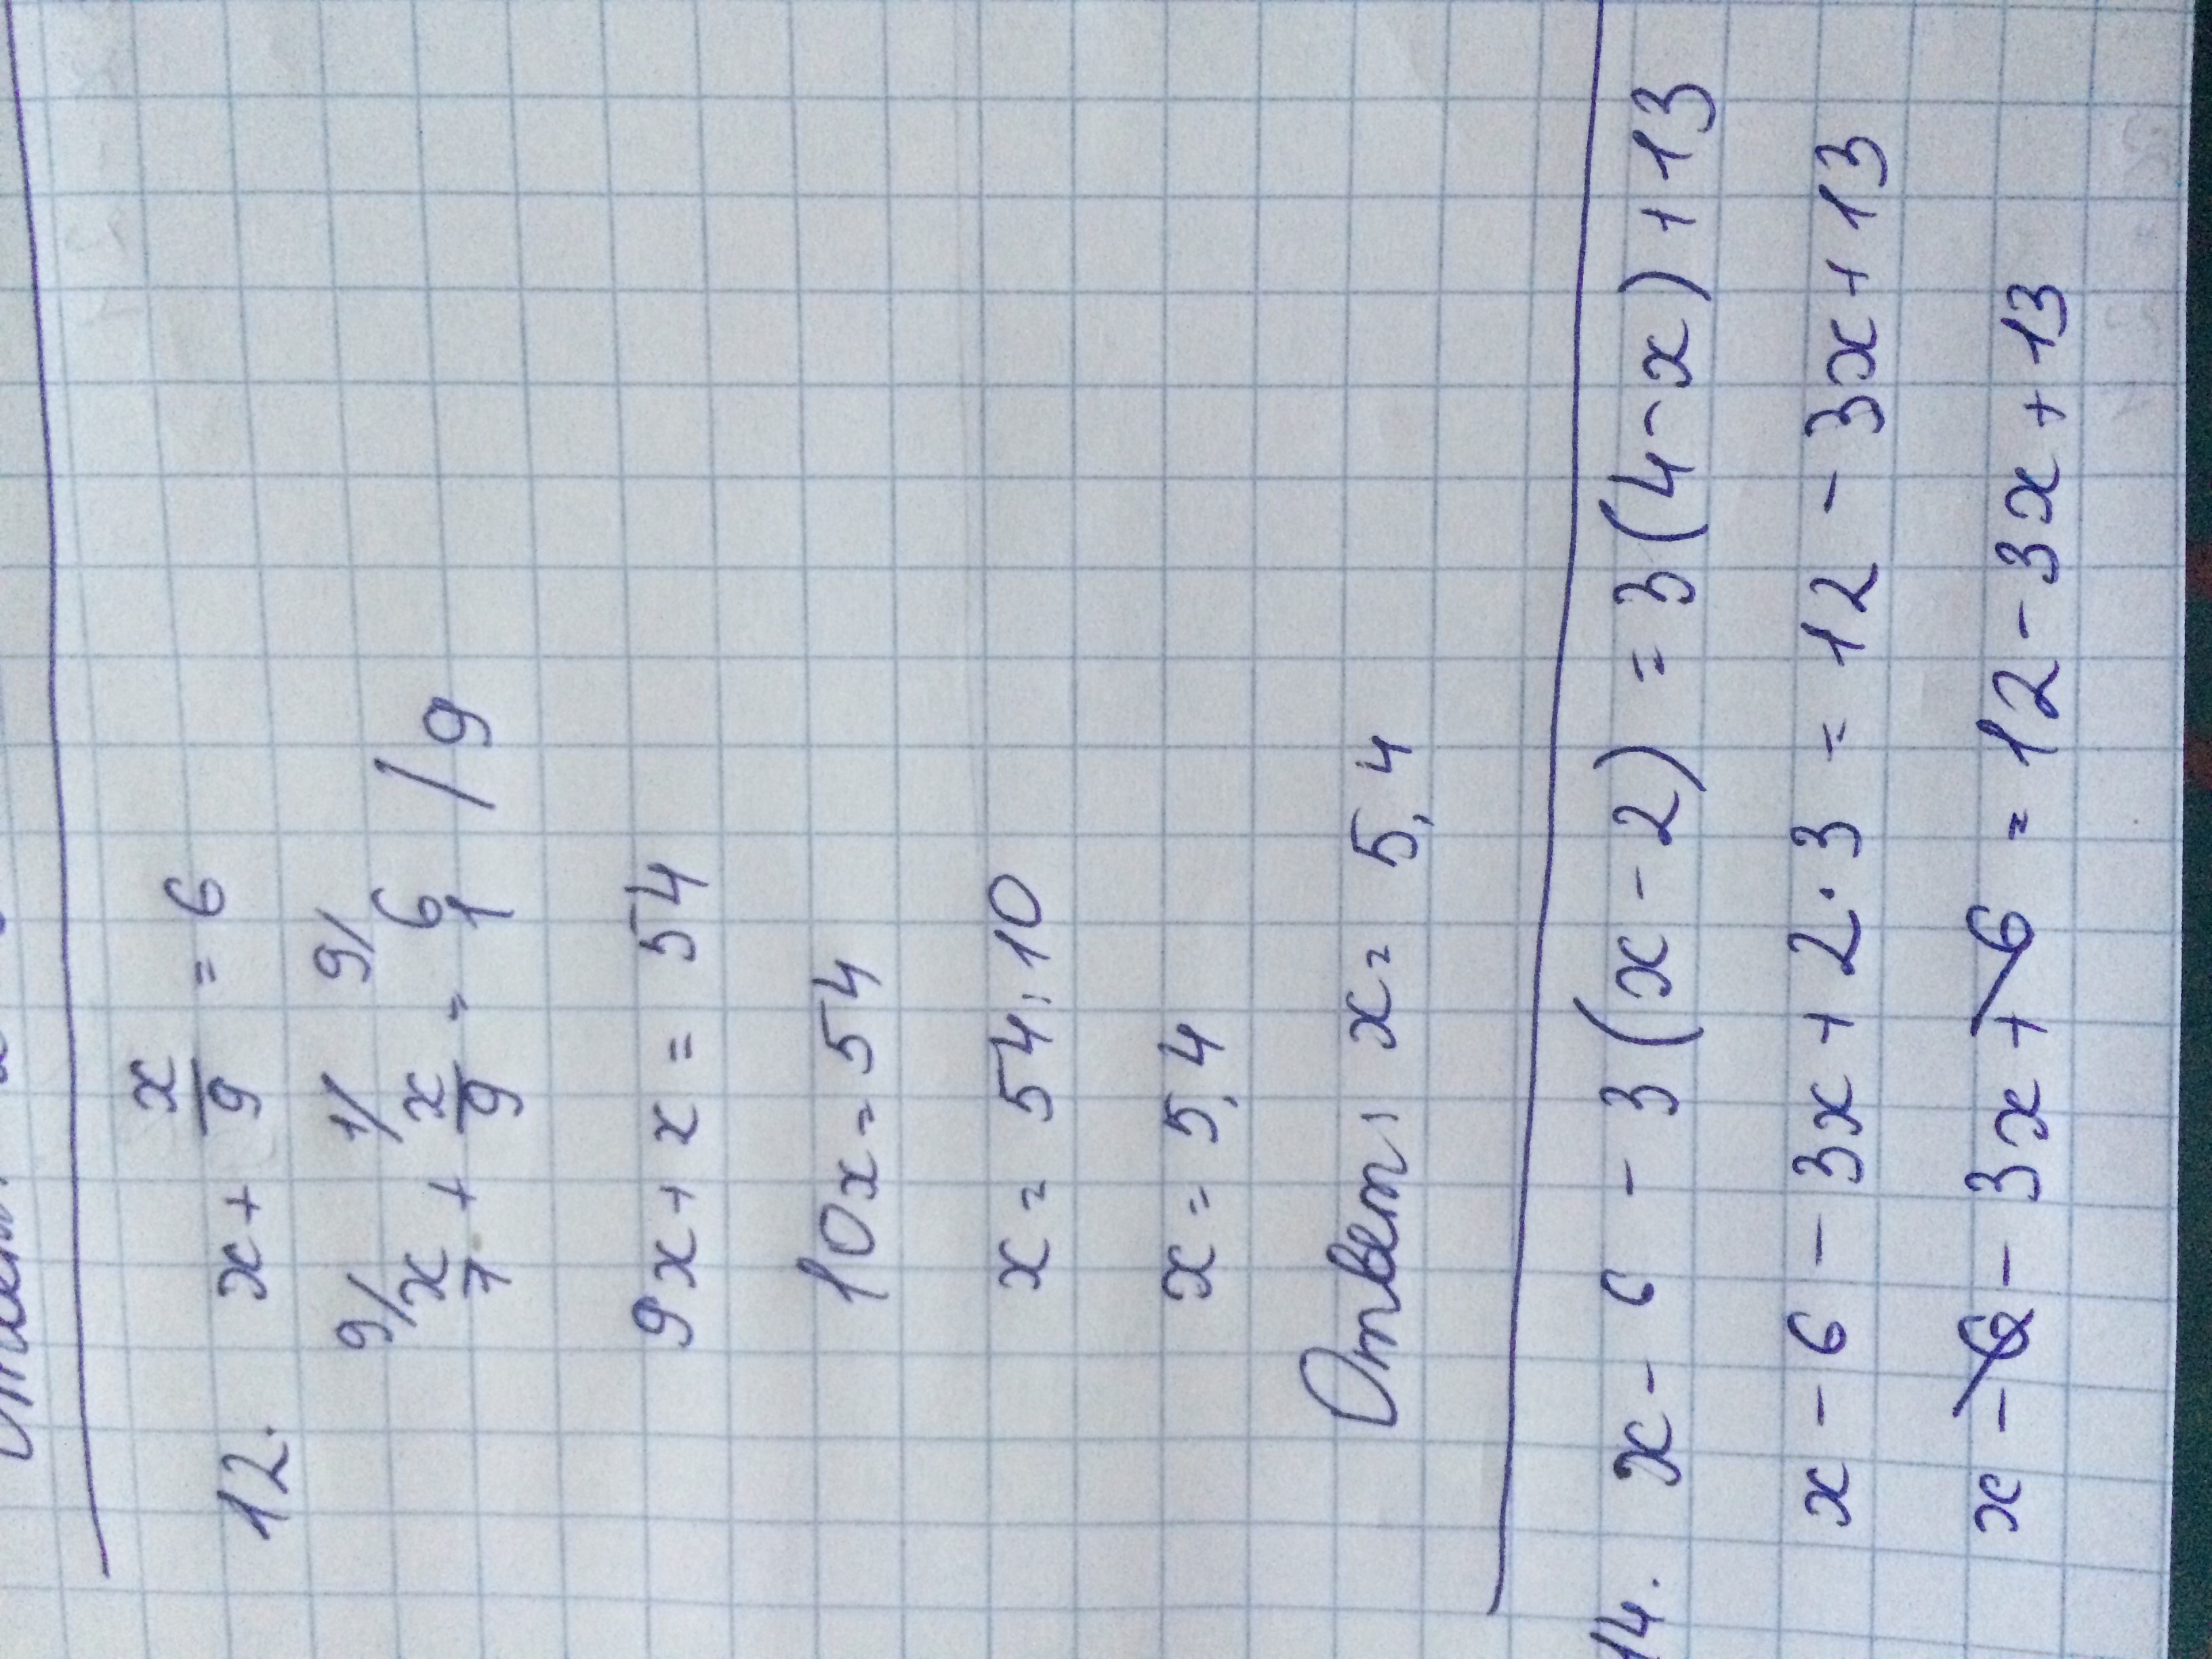 12. x + x/9 = 6
9/ 1/ 9/
x/1 + x/9 = 6/1 /9
9x + x = 54
10x = 54
x = 54:10
x = 5,4
Ответ: x = 5,4
14. x - 6 - 3(x - 2) = 3(4 - x) + 13
x - 6 - 3x + 2·3 = 12 - 3x + 13
x - 6 - 3x + 6 = 12 - 3x + 13